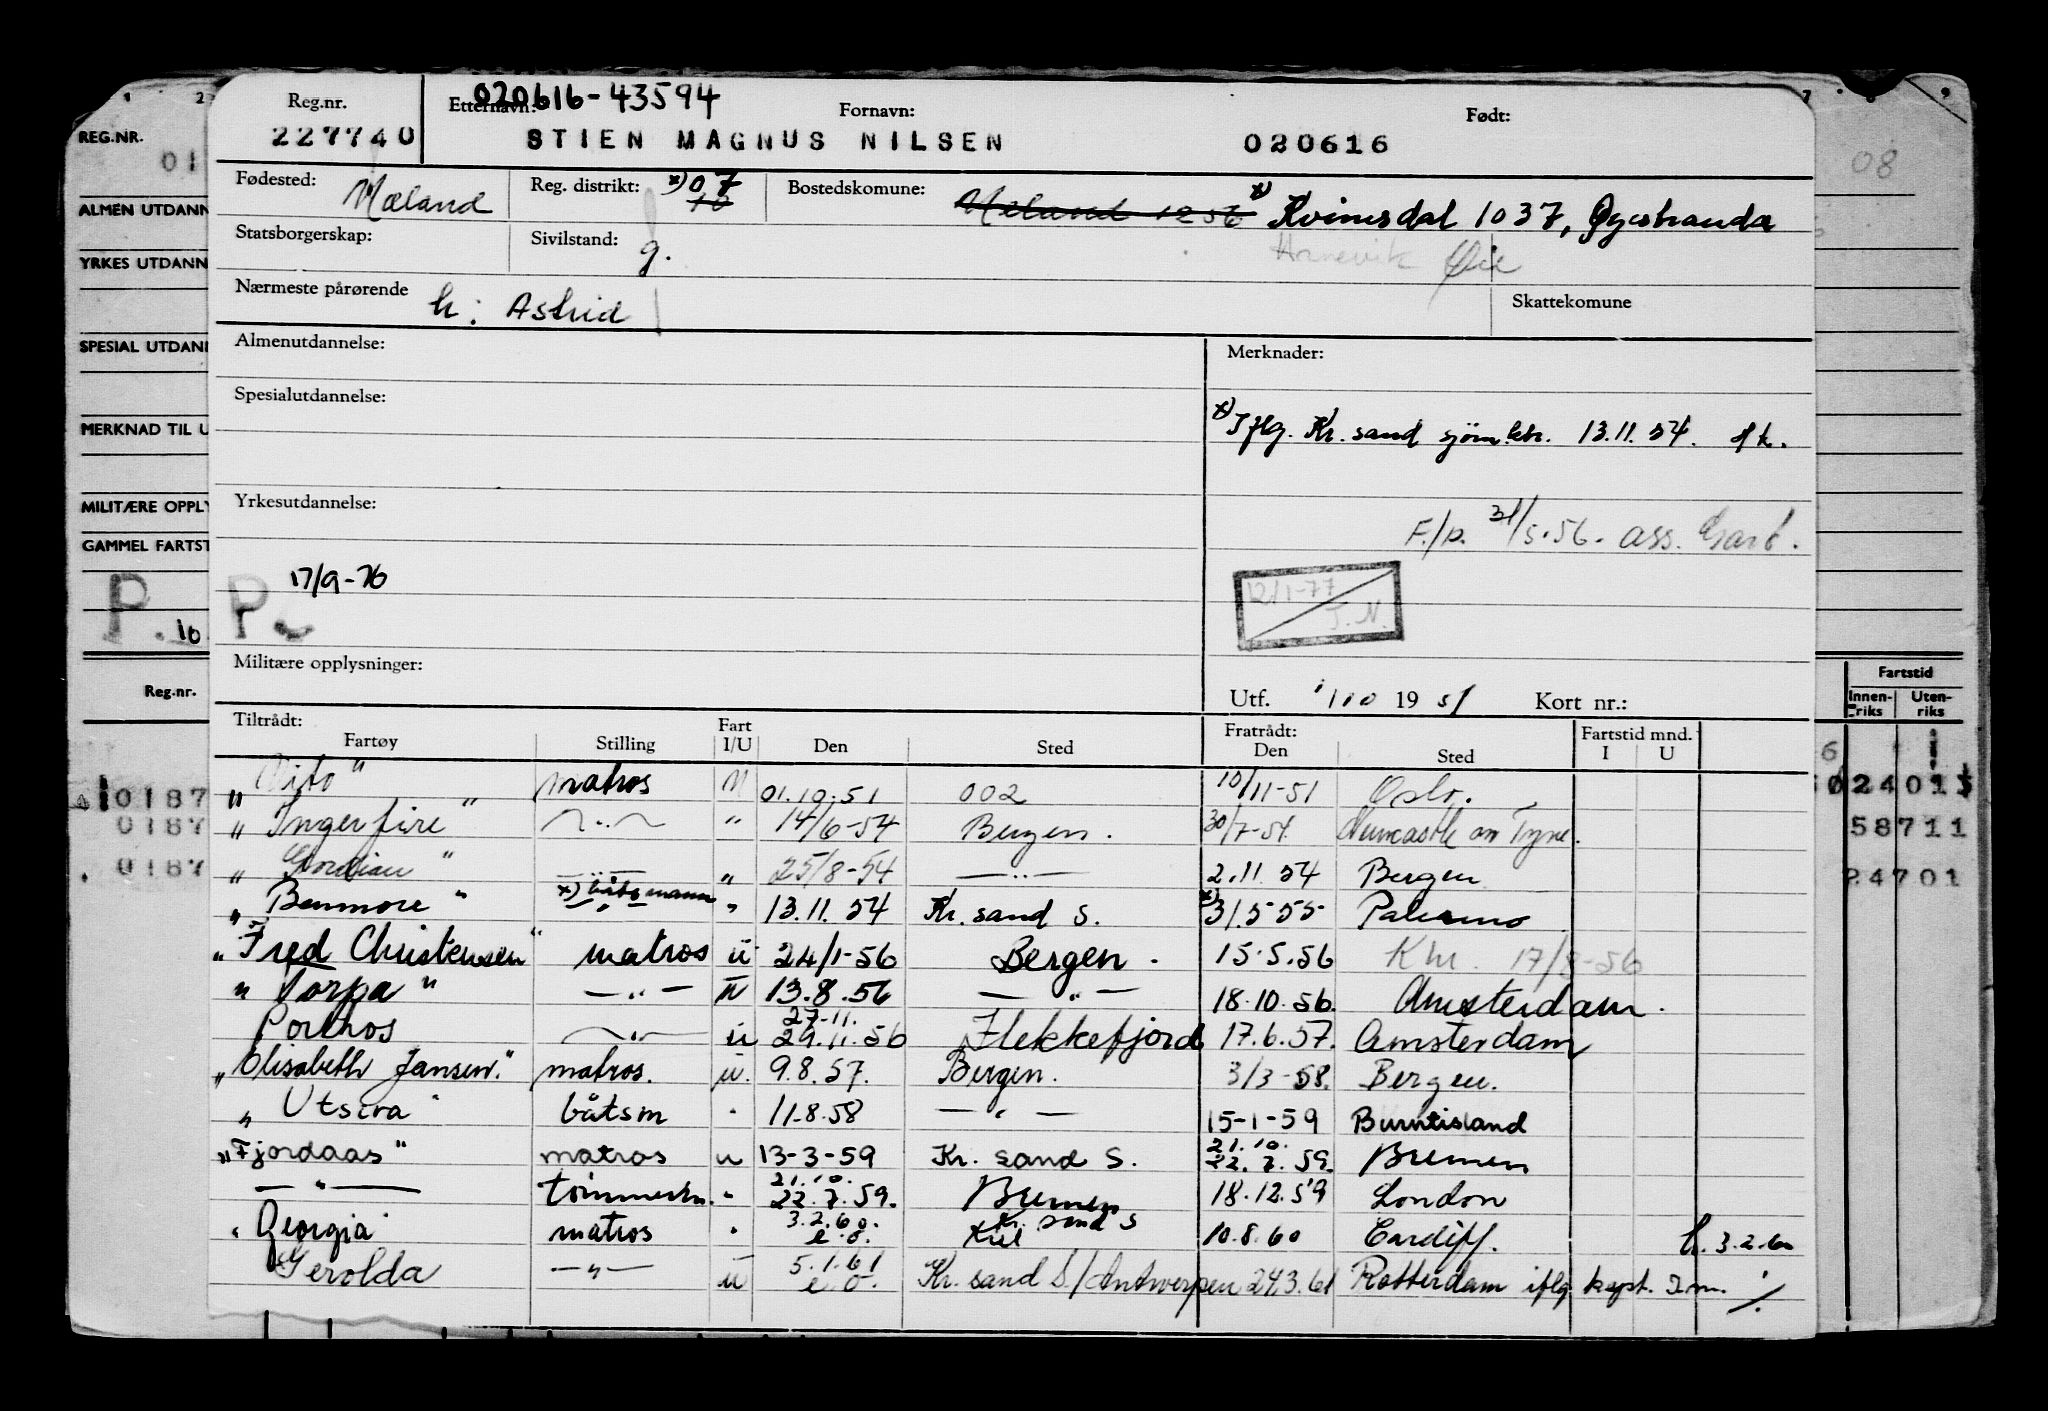 020616-43594
Reg.nr. Etternavn: Fornavn: Født:
227740 STIEN MAGNUS NILSEN 020616
Fødested: Mæland Reg. distrikt: x) 07 10 Bostedskomune: Meland 1256 x) Kvinesdal 1037, Øyestranda
Statsborgerskap: Sivilstand: g. Øie
Nærmeste pårørende h: Astrid Skattekomune
Almenutdannelse: Merknader:
Spesialutdannelse:
x) Iflg. Kr. sand sjøm.ktr. 13.11.54.
Yrkesutdannelse:
F./p. 31/5-56. ass.
17/9-76
12/1-77
P.
Militære opplysninger:
Utf. 1/10 1951 Kort nr.:
Tiltrådt: Fart Fratrådt: Fartstid mnd.
Fartøy Stilling I/U Den Sted Den Sted I U
matros 01.10.51 002 10/11-51 Oslo.
" Ingerfire " —"— " 14/6-54 Bergen. 30/7-54. Newcastle on Tyne.
" Gordian " —"— " 25/8-54 —"— 2.11.54 Bergen
" Benmore " x) båtsmann " 13.11.54 Kr. sand S. x) 31.5-55 Palermo
" Fred Christensen " matros u 24/1-56 Bergen. 15.5.56 17/8-56
" Torpa " —"— u 13.8.56 —"— 18.10.56. Amsterdam.
27-11.
Porthos —"— u 29.11.56 Flekkefjord 17.6.57. Amsterdam
" Elisabeth Jansen." matros. u. 9.8.57. Bergen. 3/3-58. Bergen.
" Utsira " båtsm " 11.8.58 —"— 15-1-59 Burntisland
21.10.
" Fjordaas " matros u 13-3-59 Kr. sand S. 22.7.59. Bremen
21.10.
—"— tømmerm. " 22.7.59. Bremen 18.12.59 London
3.2.60. Kr. sand S
" Georgia " matros " e.o. Kiel 10.8.60 Cardiff. 3.2.60
5.1.61
" Gerolda —"— u e.o. Kr. sand S/Antwerpen 24.3.61 Rotterdam iflg kapt. I.m. %
REG.NR.
01
ALMEN UTDANN
YRKES UTDANN
SPESIAL UTDANN
MERKNAD TIL U
MILITÆRE OPPLY
GAMMEL FARTST
P. 10
Reg.nr.
0187
0187
0187
08
Fartstid
Innenriks Utenriks
24013
58711
24701